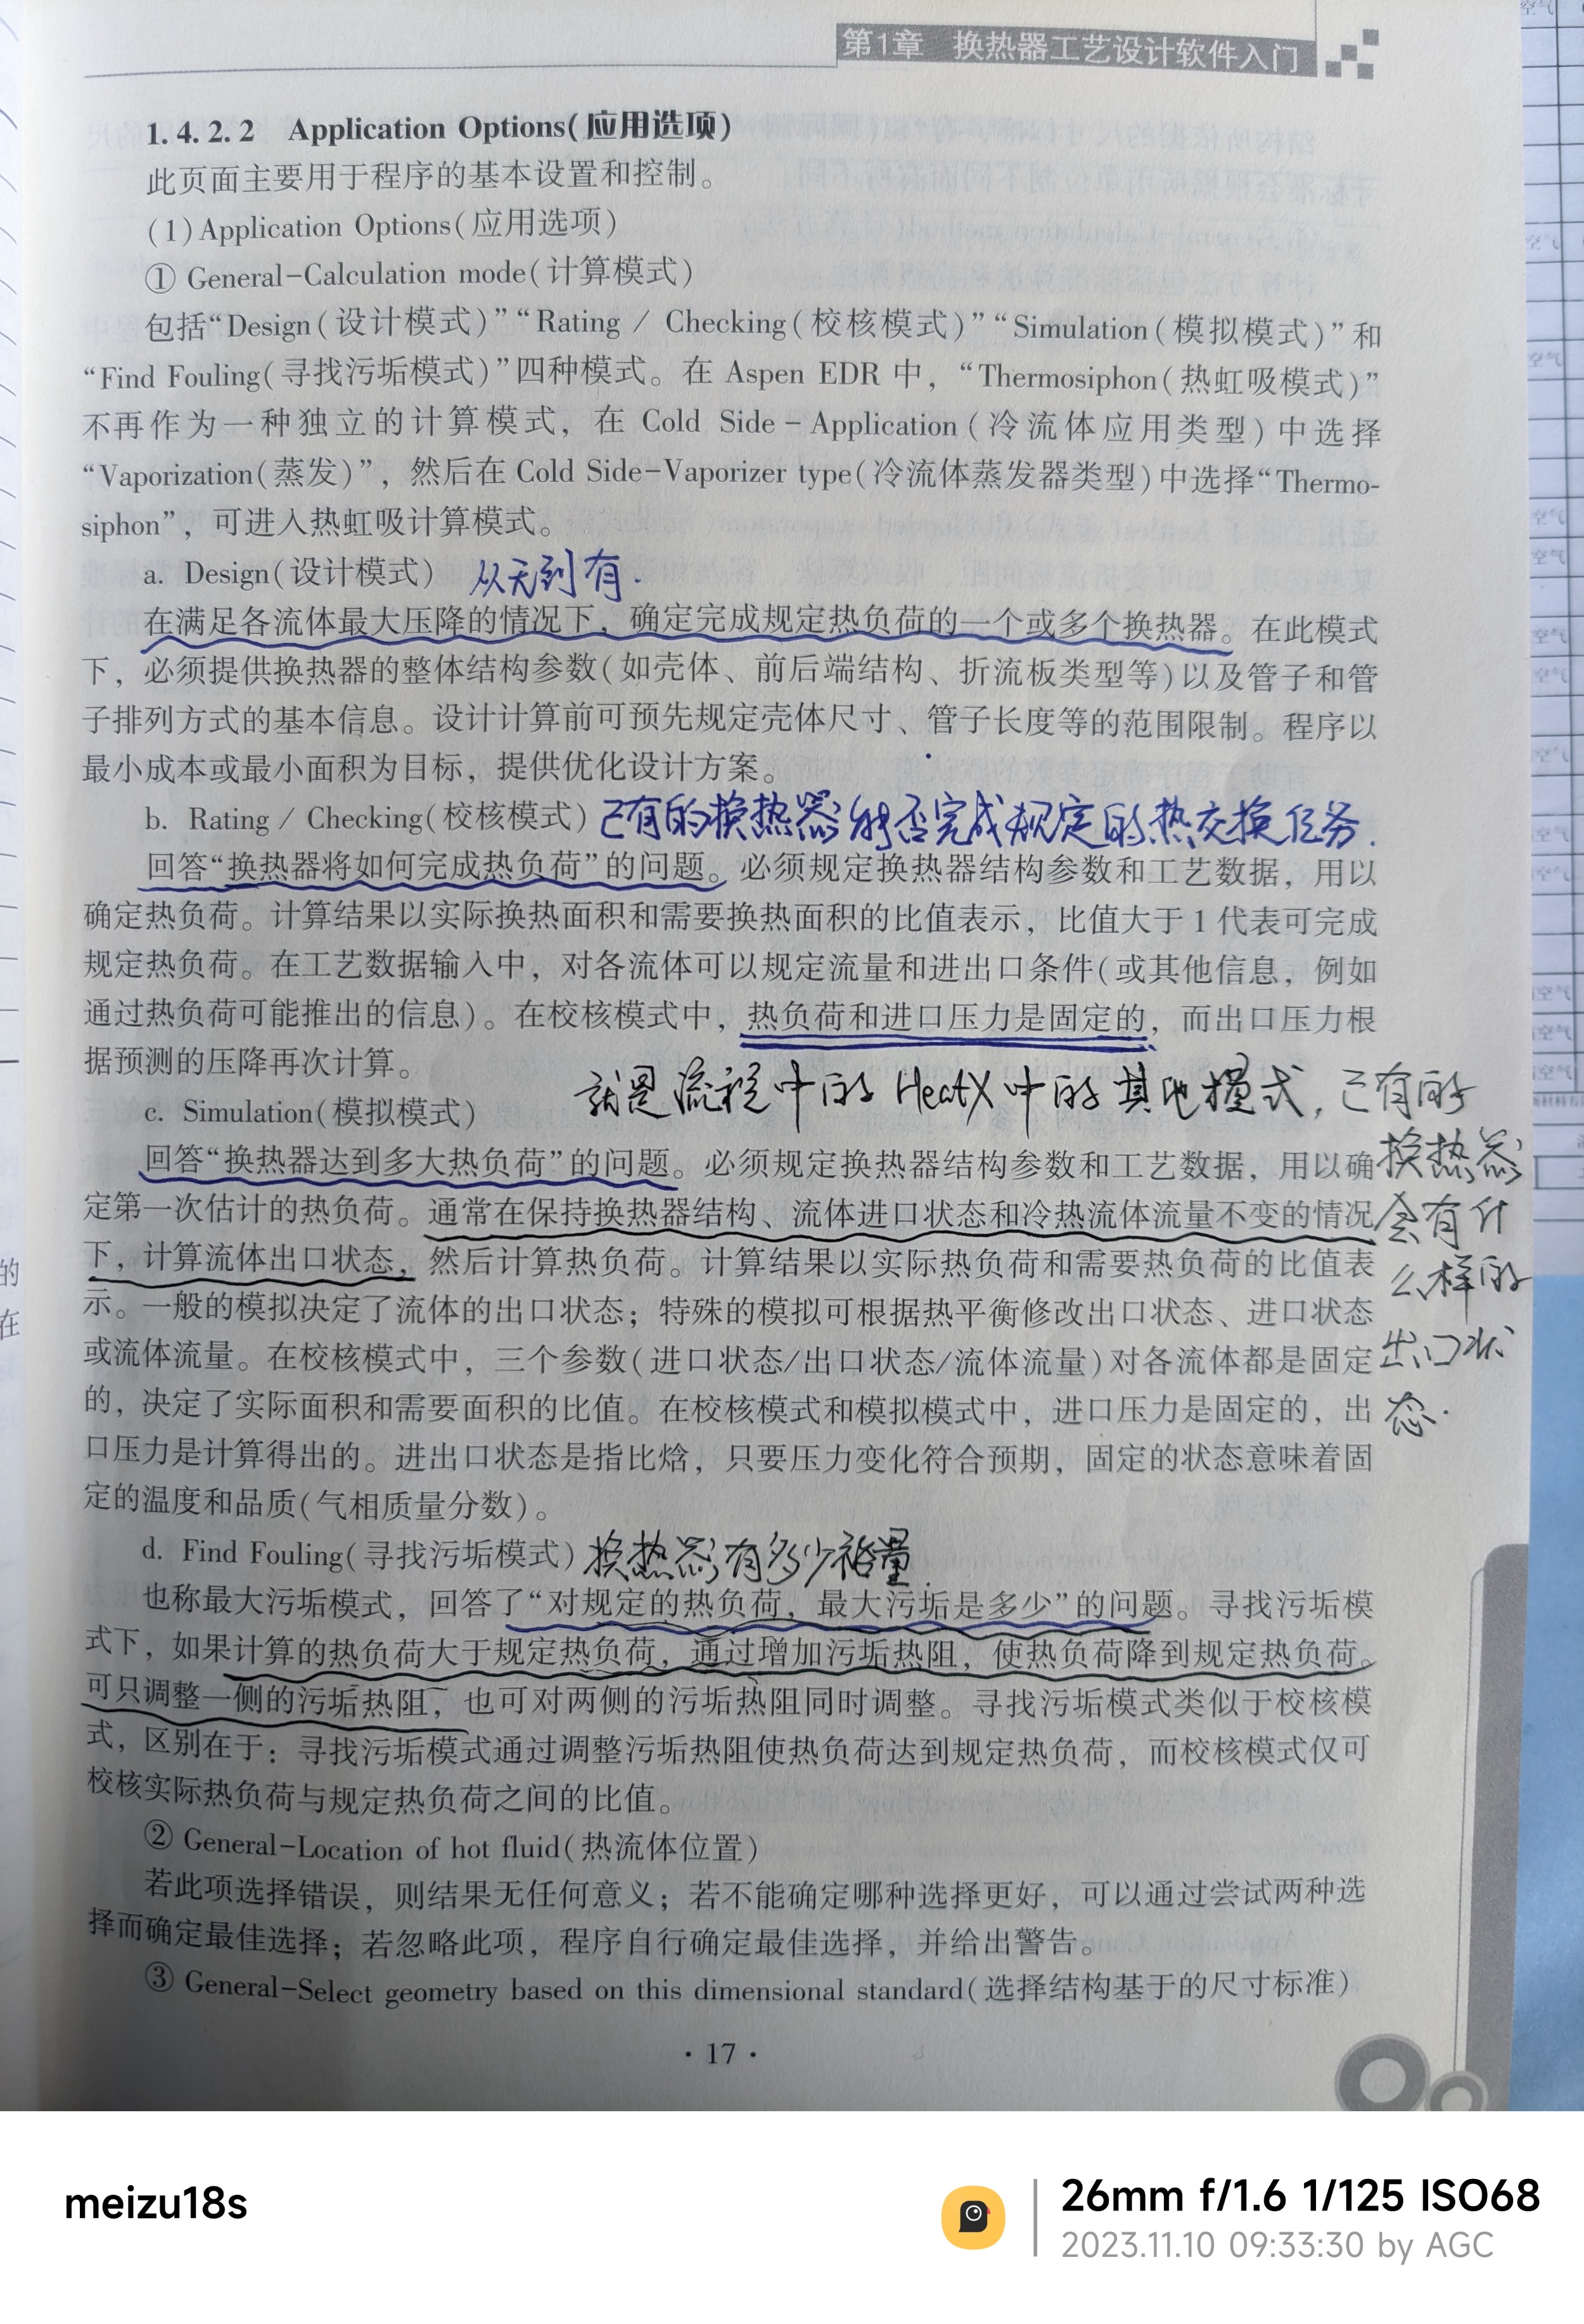 第1章 换热器工艺设计软件入门
1.4.2.2 Application Options(应用选项)
此页面主要用于程序的基本设置和控制。
(1)Application Options(应用选项)
① General-Calculation mode(计算模式)
包括“Design(设计模式)”“Rating / Checking(校核模式)”“Simulation(模拟模式)”和
“Find Fouling(寻找污垢模式)”四种模式。在 Aspen EDR 中，“Thermosiphon(热虹吸模式)”
不再作为一种独立的计算模式，在 Cold Side-Application(冷流体应用类型)中选择
“Vaporization(蒸发)”，然后在 Cold Side-Vaporizer type(冷流体蒸发器类型)中选择“Thermo-
siphon”，可进入热虹吸计算模式。
a. Design(设计模式) 从无到有.
在满足各流体最大压降的情况下，确定完成规定热负荷的一个或多个换热器。在此模式
下，必须提供换热器的整体结构参数(如壳体、前后端结构、折流板类型等)以及管子和管
子排列方式的基本信息。设计计算前可预先规定壳体尺寸、管子长度等的范围限制。程序以
最小成本或最小面积为目标，提供优化设计方案。
b. Rating / Checking(校核模式) 已有的换热器能否完成规定的热交换任务.
回答“换热器将如何完成热负荷”的问题。必须规定换热器结构参数和工艺数据，用以
确定热负荷。计算结果以实际换热面积和需要换热面积的比值表示，比值大于 1 代表可完成
规定热负荷。在工艺数据输入中，对各流体可以规定流量和进出口条件(或其他信息，例如
通过热负荷可能推出的信息)。在校核模式中，热负荷和进口压力是固定的，而出口压力根
据预测的压降再次计算。
就是流程中的 HeatX 中的其他模式，已有的
换热器
会有什
么样的
出口状
态.
c. Simulation(模拟模式)
回答“换热器达到多大热负荷”的问题。必须规定换热器结构参数和工艺数据，用以确
定第一次估计的热负荷。通常在保持换热器结构、流体进口状态和冷热流体流量不变的情况
下，计算流体出口状态，然后计算热负荷。计算结果以实际热负荷和需要热负荷的比值表
示。一般的模拟决定了流体的出口状态；特殊的模拟可根据热平衡修改出口状态、进口状态
或流体流量。在校核模式中，三个参数(进口状态/出口状态/流体流量)对各流体都是固定
的，决定了实际面积和需要面积的比值。在校核模式和模拟模式中，进口压力是固定的，出
口压力是计算得出的。进出口状态是指比焓，只要压力变化符合预期，固定的状态意味着固
定的温度和品质(气相质量分数)。
d. Find Fouling(寻找污垢模式) 换热器有多少裕量.
也称最大污垢模式，回答了“对规定的热负荷，最大污垢是多少”的问题。寻找污垢模
式下，如果计算的热负荷大于规定热负荷，通过增加污垢热阻，使热负荷降到规定热负荷。
可只调整一侧的污垢热阻，也可对两侧的污垢热阻同时调整。寻找污垢模式类似于校核模
式，区别在于：寻找污垢模式通过调整污垢热阻使热负荷达到规定热负荷，而校核模式仅可
校核实际热负荷与规定热负荷之间的比值。
② General-Location of hot fluid(热流体位置)
若此项选择错误，则结果无任何意义；若不能确定哪种选择更好，可以通过尝试两种选
择而确定最佳选择；若忽略此项，程序自行确定最佳选择，并给出警告。
③ General-Select geometry based on this dimensional standard(选择结构基于的尺寸标准)
· 17 ·
的
在
meizu18s
26mm f/1.6 1/125 ISO68
2023.11.10 09:33:30 by AGC